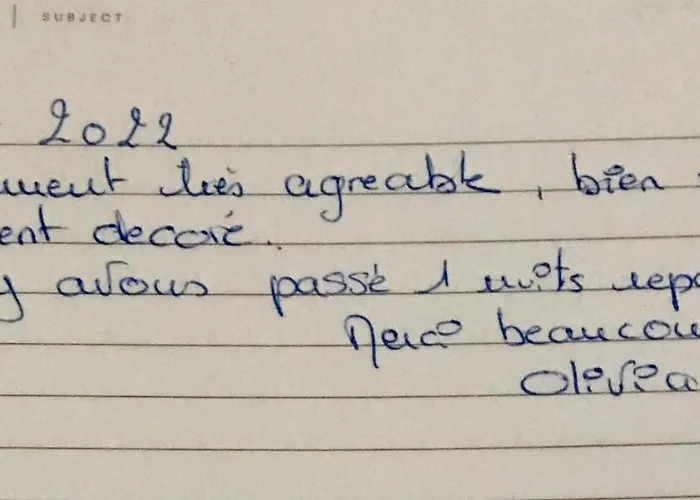 SUBJECT
2022
ment très agreable, bien
ent decoré.
y avons passé 1 nuits repo
Merci beaucou
Olivia